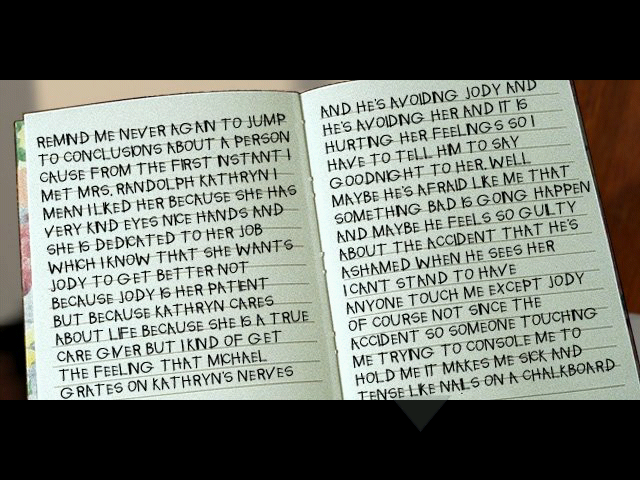 REMIND ME NEVER AGAIN TO JUMP
TO CONCLUSIONS ABOUT A PERSON
CAUSE FROM THE FIRST INSTANT I
MET MRS. RANDOLPH KATHRYN I
MEAN I LIKED HER BECAUSE SHE HAS
VERY KIND EYES NICE HANDS AND
SHE IS DEDICATED TO HER JOB
WHICH I KNOW THAT SHE WANTS
JODY TO GET BETTER NOT
BECAUSE JODY IS HER PATIENT
BUT BECAUSE KATHRYN CARES
ABOUT LIFE BECAUSE SHE IS A TRUE
CARE GIVER BUT I KIND OF GET
THE FEELING THAT MICHAEL
GRATES ON KATHRYN'S NERVES
AND HE'S AVOIDING JODY AND
HE'S AVOIDING HER AND IT IS
HURTING HER FEELINGS SO I
HAVE TO TELL HIM TO SAY
GOODNIGHT TO HER. WELL
MAYBE HE'S AFRAID LIKE ME THAT
SOMETHING BAD IS GOING HAPPEN
AND MAYBE HE FEELS SO GUILTY
ABOUT THE ACCIDENT THAT HE'S
ASHAMED WHEN HE SEES HER
I CANT STAND TO HAVE
ANYONE TOUCH ME EXCEPT JODY
OF COURSE NOT SINCE THE
ACCIDENT SO SOMEONE TOUCHING
ME TRYING TO CONSOLE ME TO
HOLD ME IT MAKES ME SICK AND
TENSE LIKE NAILS ON A CHALKBOARD